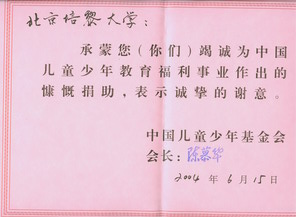 北京培黎大学：
承蒙您（你们）竭诚为中国
儿童少年教育福利事业作出的
慷慨捐助，表示诚挚的谢意。
中国儿童少年基金会
会长：陈慕华
2004 年 6 月 15 日